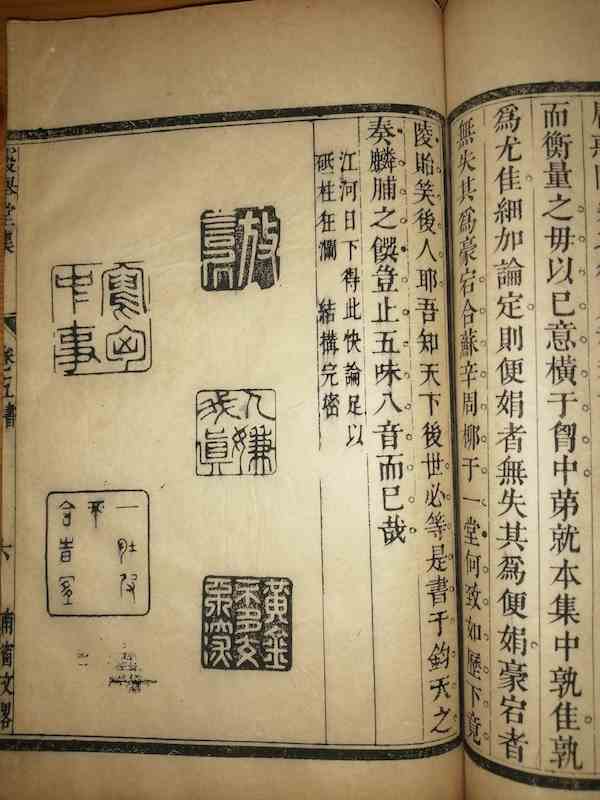 而衡量之毋以已意橫于胷中苐就本集中孰佳孰
爲尤佳細加論定則便娟者無失其爲便娟豪宕者
無失其爲豪宕合蘇辛周柳于一堂何致如歷下竟
陵貽笑後人耶吾知天下後世必等是書于鈞天之
奏麟脯之饌豈止五味八音而已哉
江河日下得此快論足以
砥柱狂瀾　結構完密
人嫌我眞
黃金不多交不深
卷之五書　六　南窗文畧